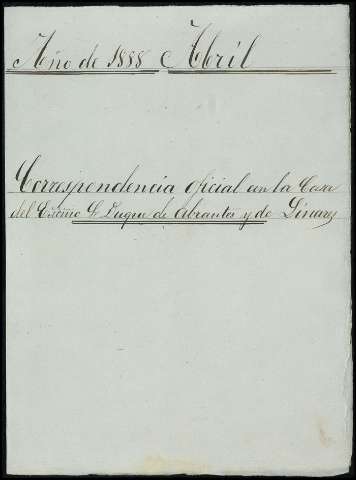 Año de 1888 Abril
Correspondencia oficial con la Casa
del Excmo Sr Duque de Abrantes y de Linares